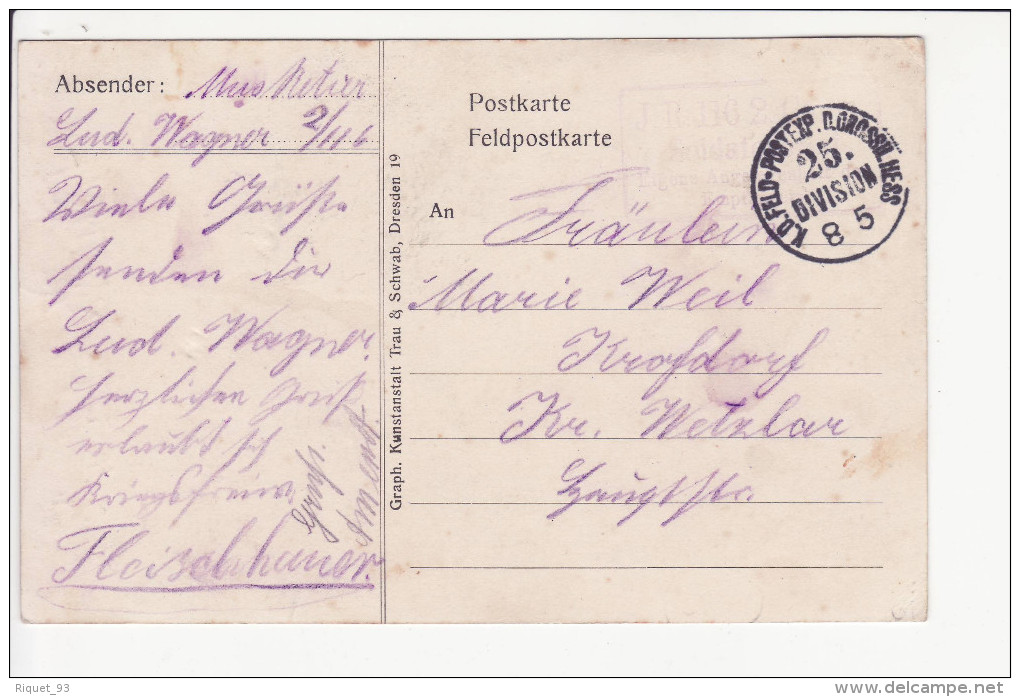 Absender: Musketier
Lud. Wagner
Viele Grüße
senden dir
Lud. Wagner.
Herzlichen Gruß
erlaubt sich
Kriegsfreiw.
Fleischhauer.
Gruß.
Graph. Kunstanstalt Trau & Schwab, Dresden 19
Postkarte
Feldpostkarte
K.D. FELD-POSTEXP. D. GROSSH. HESS
25.
DIVISION
8 5
An
Fräulein
Marie Weil
Krofdorf
Kr. Wetzlar
Hauptstr.
Riquet_93
www.delcampe.net